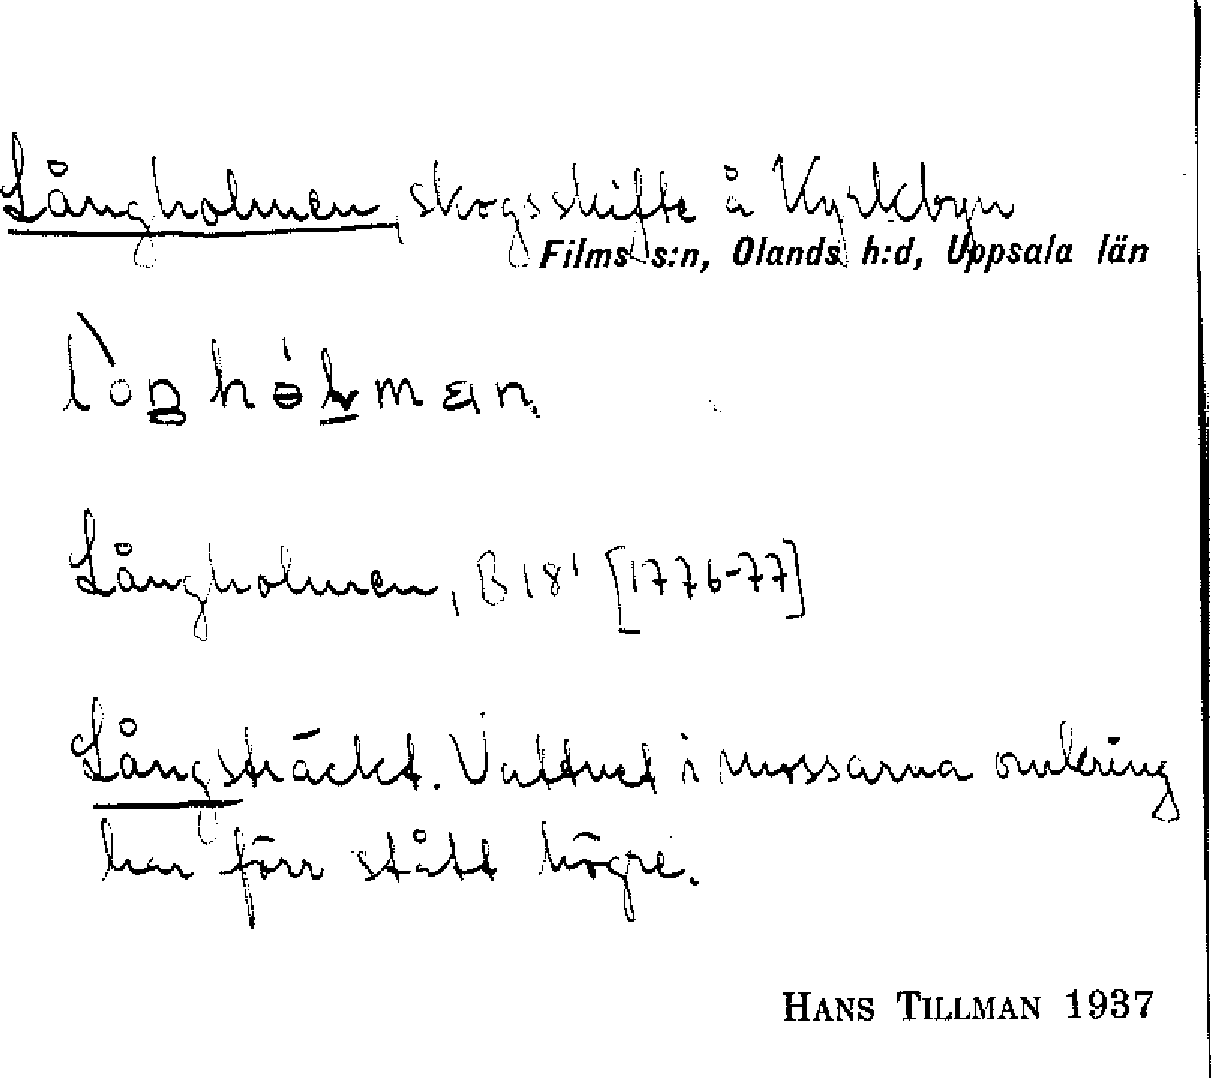 Långholmen, skogsskifte å Kyrkbyn
Films s:n, Olands h:d, Uppsala län
Långholmen, B 18¹ [1776-77]
Långsträckt. Vattnet i mossarna omkring
har förr stått högre.
HANS TILLMAN 1937